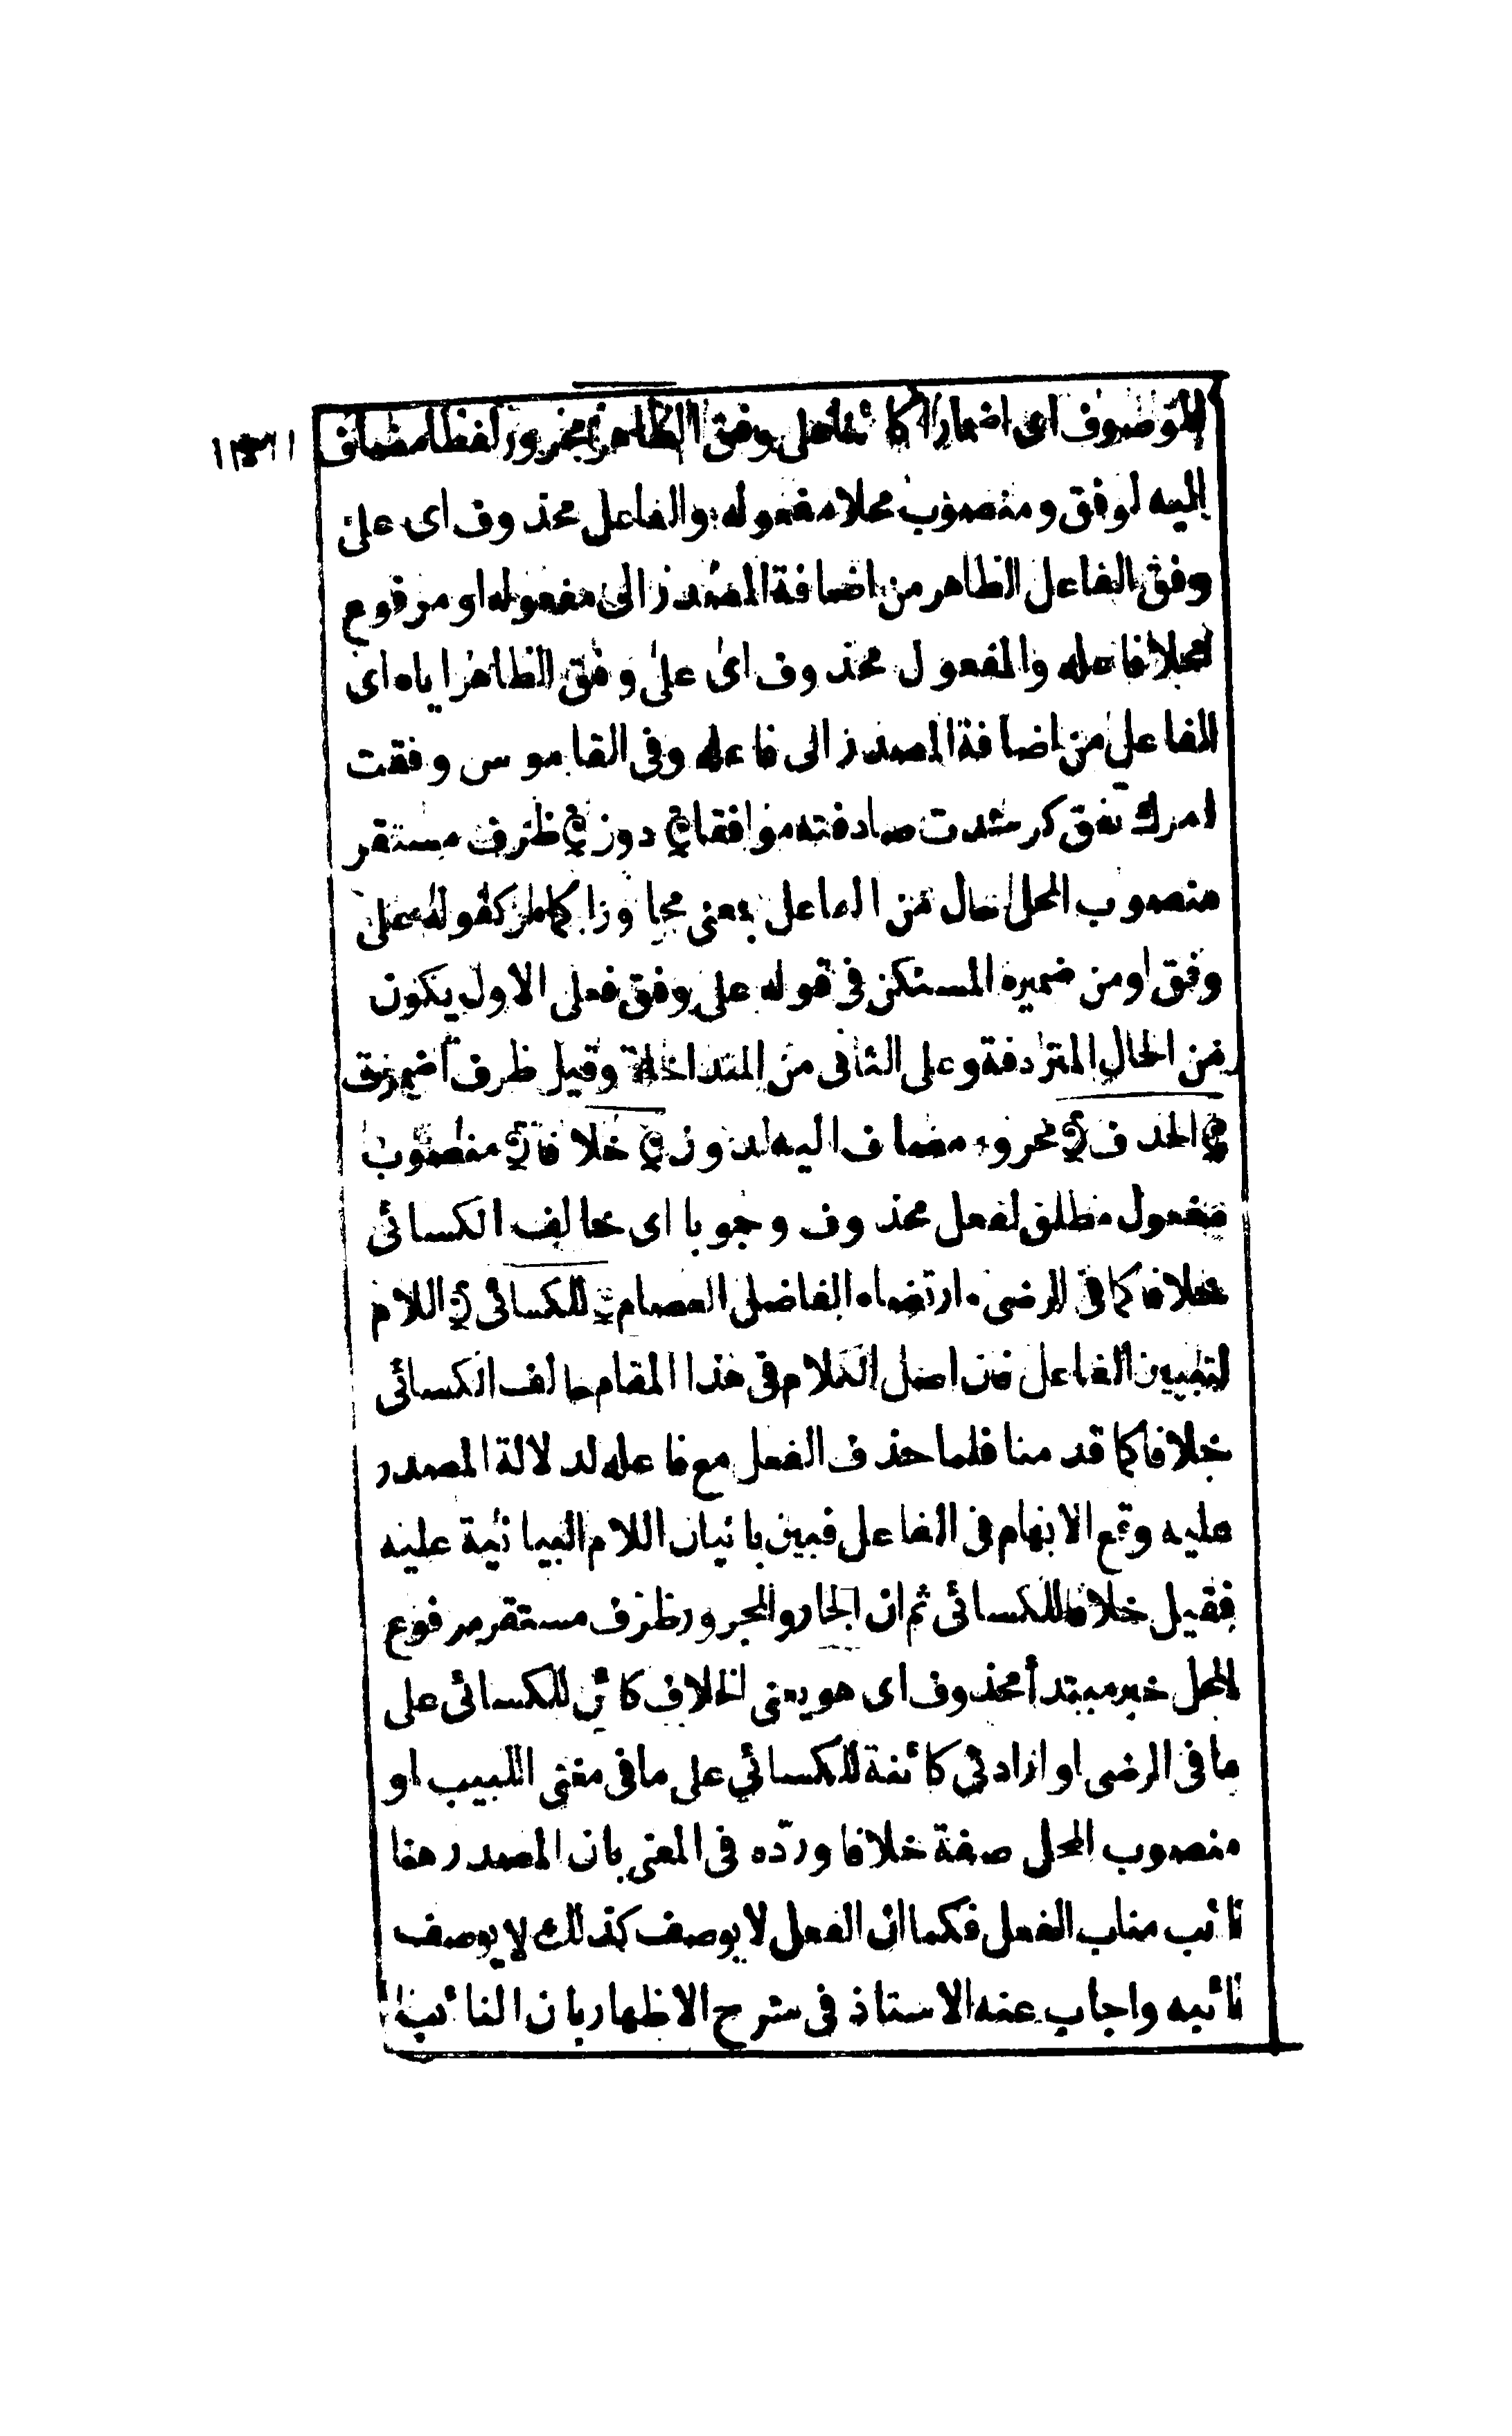 الموصوف اى اضمارا كائنا على وفق الظاهر مجرور لفظا مضاف
اليه لوفق ومنصوب محلا مفعوله والفاعل محذوف اى على
وفق الفاعل الظاهر من اضافة المصدر الى مفعوله او مرفوع
محلا فاعله والمفعول محذوف اى على وفق الظاهر اياه اى
الفاعل من اضافة المصدر الى فاعله وفى القاموس وفقت
امرك تفق كرشدت صادفته موافقا دون ظرف مستقر
منصوب المحل حال من الفاعل بمعنى مجاوزا كقوله على
وفق او من ضميره المستكن فى قوله على وفق فعلى الاول يكون
من الحال المترادفة وعلى الثانى من المتداخلة وقيل ظرف اضمرت
الحذف مجرور مضاف اليه لدون خلافا منصوب
مفعول مطلق لفعل محذوف وجوبا اى خالف الكسائى
خلافا كما فى الرضى وارتضاه الفاضل العصام للكسائى اللام
لتبيين الفاعل فان اصل الكلام فى هذا المقام خالف الكسائى
خلافا كما قدمنا فلما حذف الفعل مع فاعله لدلالة المصدر
عليه وقع الابهام فى الفاعل فبين باتيان اللام البيانية عليه
فقيل خلافا للكسائى ثم ان الجار والمجرور ظرف مستقر مرفوع
المحل خبر مبتدأ محذوف اى هو يعنى الخلاف كائن للكسائى على
ما فى الرضى او ارادتى كائنة للكسائي على ما فى مغنى اللبيب او
منصوب المحل صفة خلافا وردّه فى المغنى بان المصدر هنا
نائب مناب الفعل فكما ان الفعل لا يوصف كذلك لا يوصف
نائبه واجاب عنه الاستاذ فى شرح الاظهار بان النائب